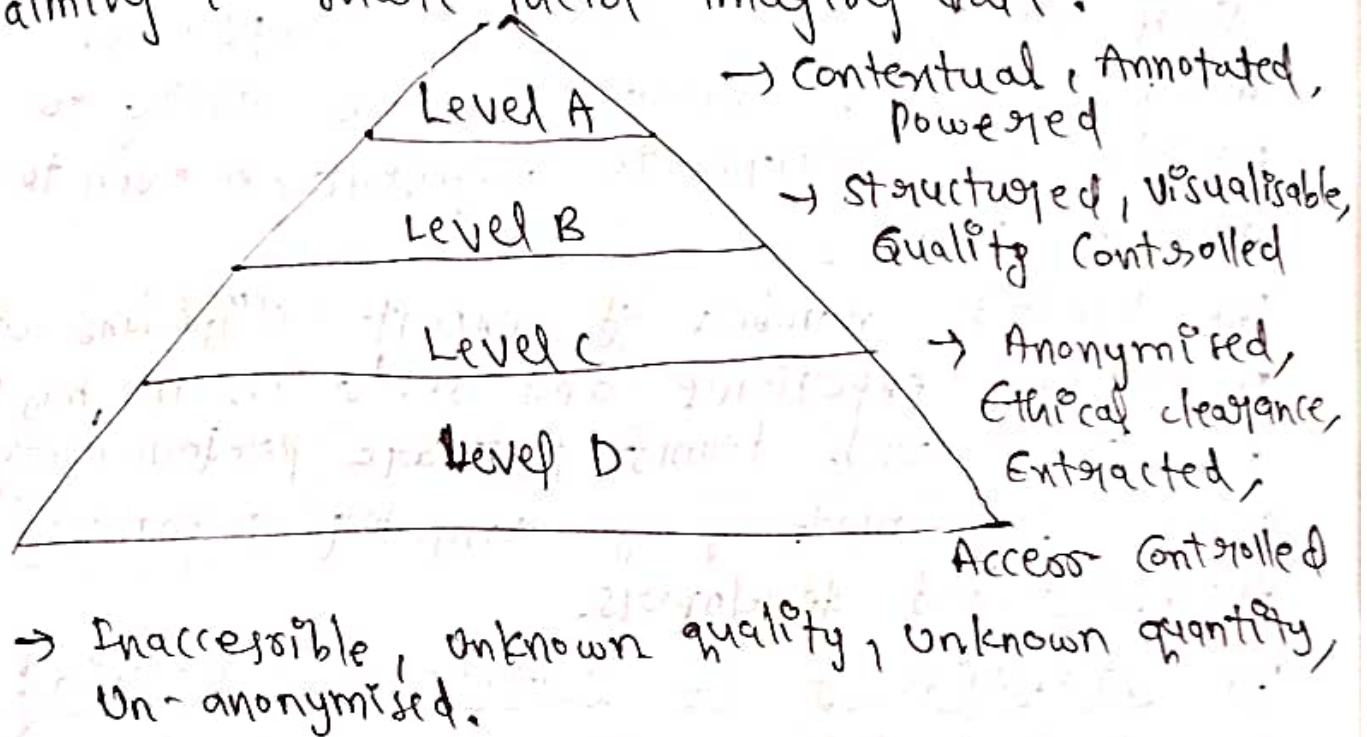 Level A
→ Contextual, Annotated,
Powered
Level B
→ Structured, Visualisable,
Quality Controlled
Level C
→ Anonymised,
Ethical clearance,
Extracted,
Access Controlled
Level D
→ Inaccessible, Unknown quality, Unknown quantity,
Un-anonymised.